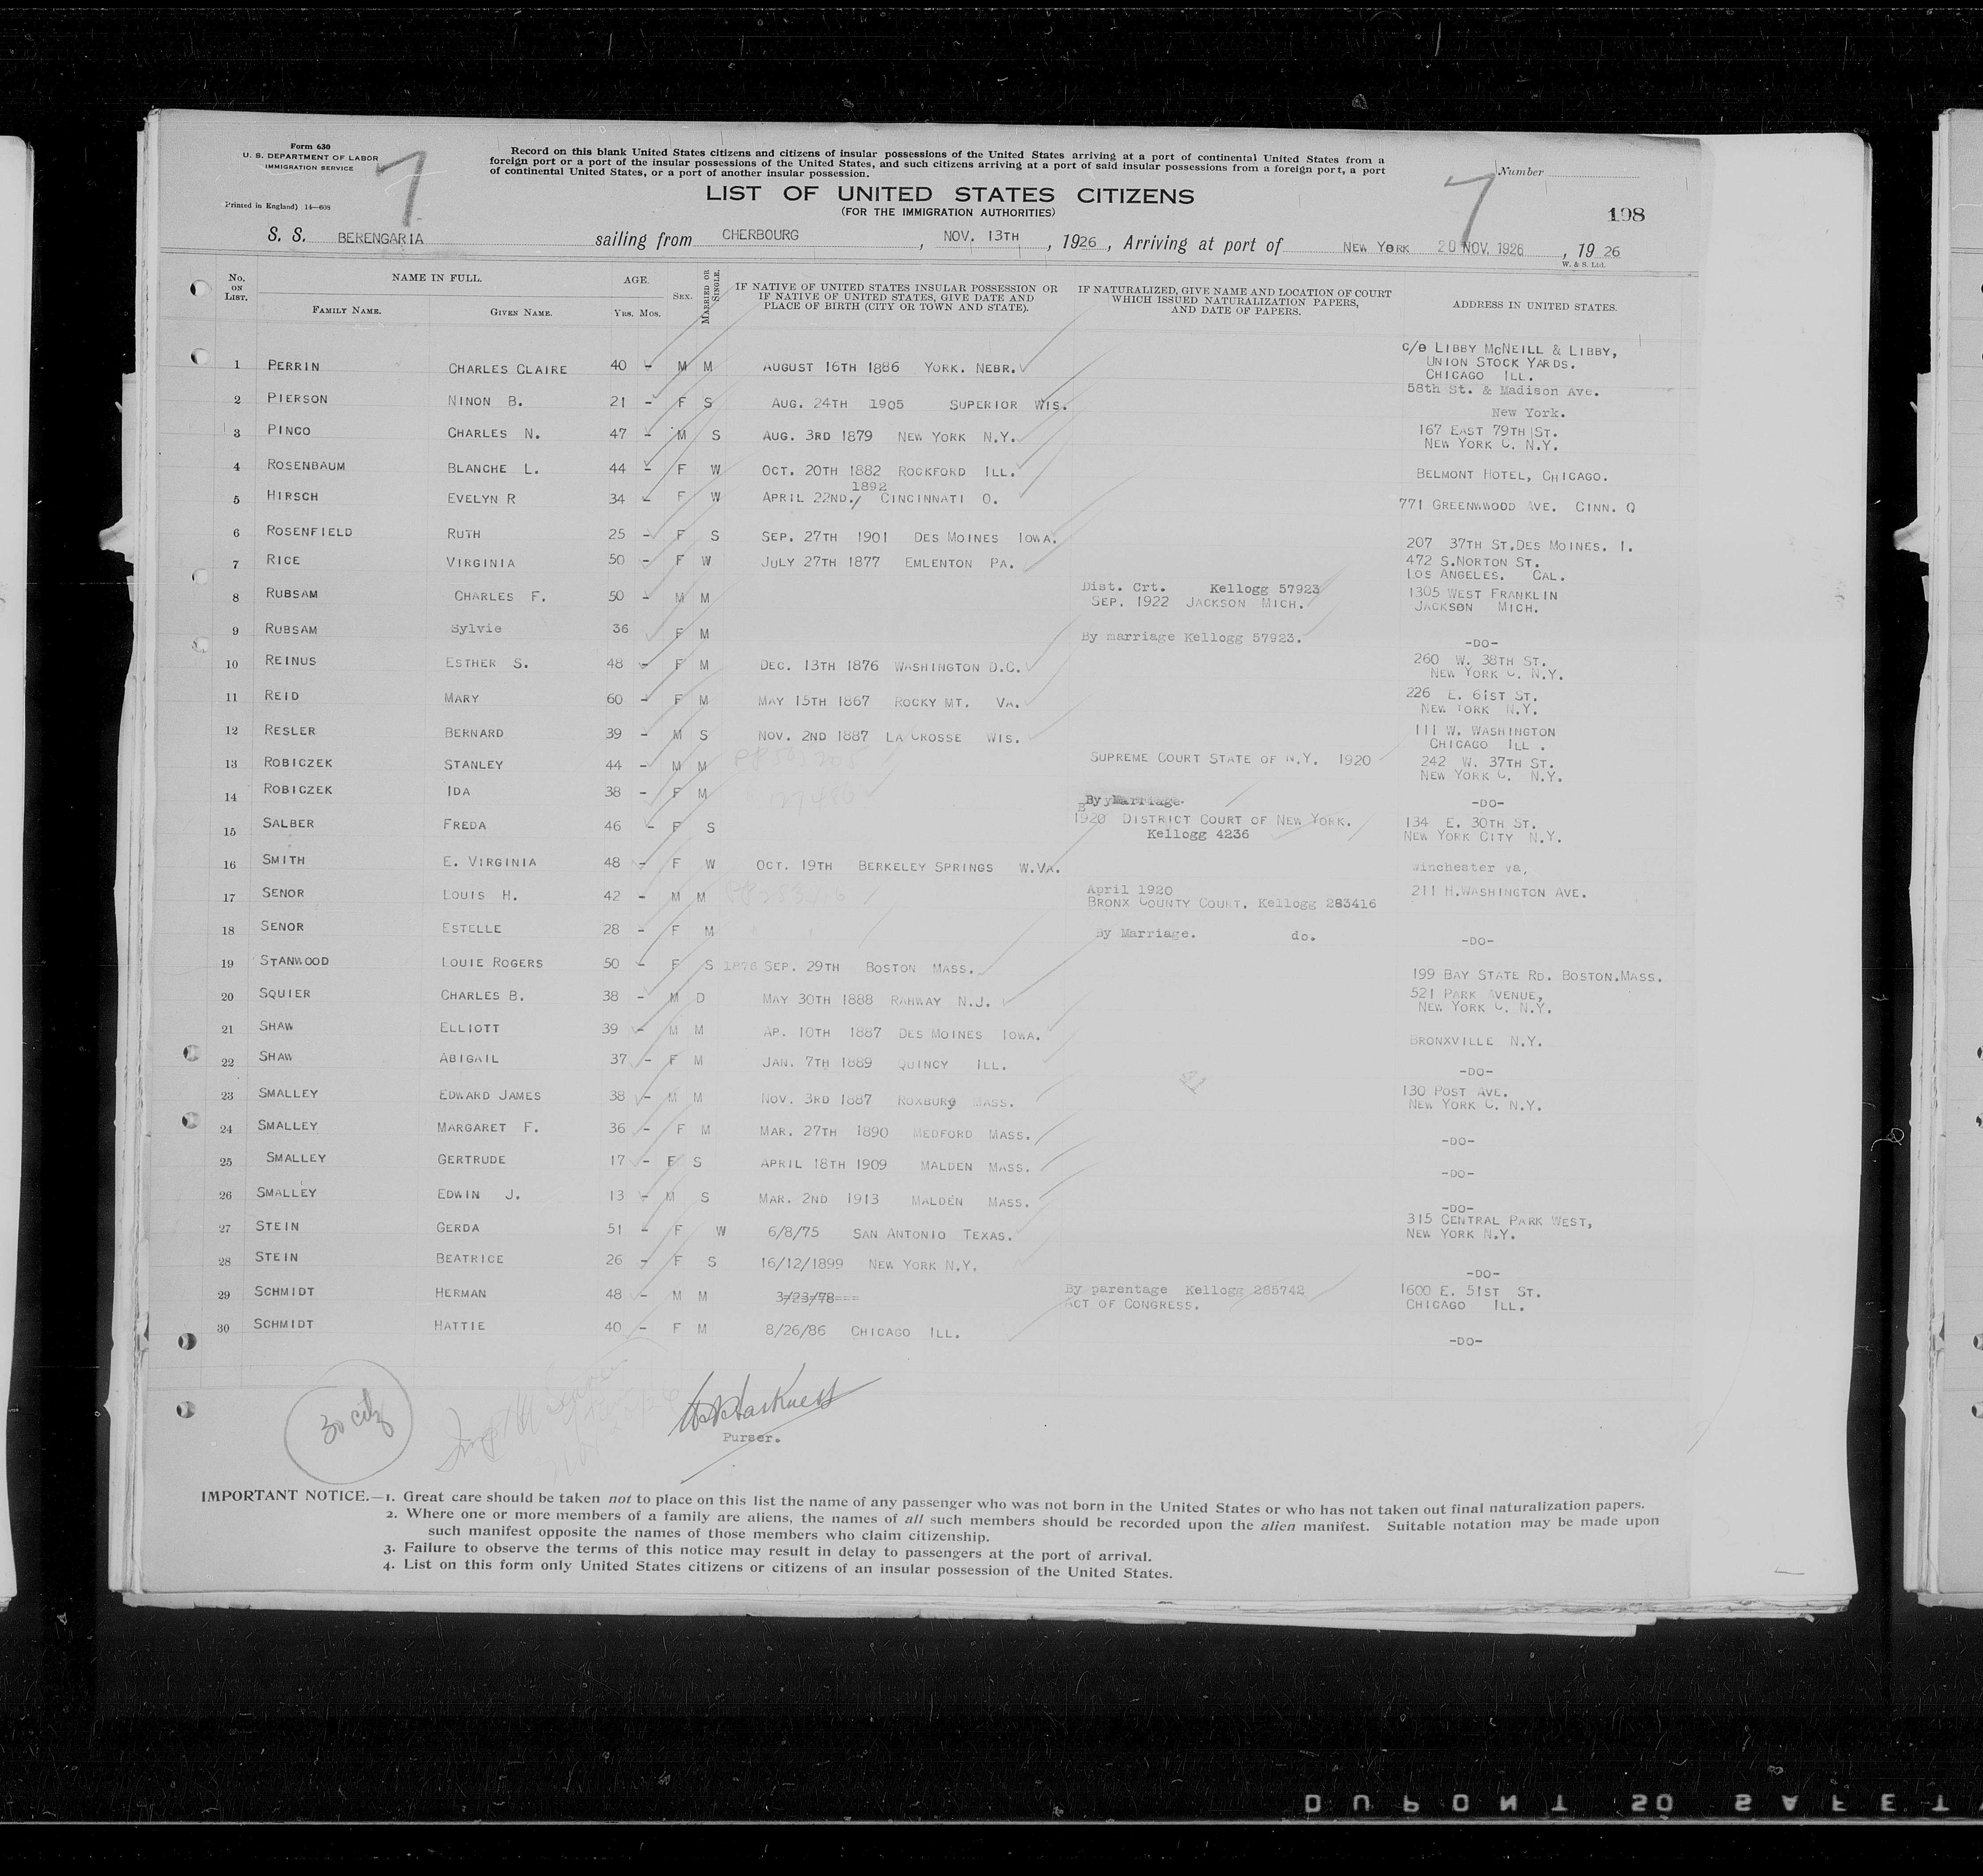 Form 630
U. S. DEPARTMENT OF LABOR
IMMIGRATION SERVICE
Printed in England) 14—608
7
Record on this blank United States citizens and citizens of insular possessions of the United States arriving at a port of continental United States from a
foreign port or a port of the insular possessions of the United States, and such citizens arriving at a port of said insular possessions from a foreign port, a port
of continental United States, or a port of another insular possession.
LIST OF UNITED STATES CITIZENS
(FOR THE IMMIGRATION AUTHORITIES)
7
Number
198
S. S. BERENGARIA sailing from CHERBOURG, NOV. 13TH, 1926, Arriving at port of NEW YORK 20 NOV. 1926, 19 26
W. & S. Ltd.
No. ON LIST. NAME IN FULL. FAMILY NAME. GIVEN NAME. AGE. YRS. MOS. SEX. MARRIED OR SINGLE. IF NATIVE OF UNITED STATES INSULAR POSSESSION OR IF NATIVE OF UNITED STATES, GIVE DATE AND PLACE OF BIRTH (CITY OR TOWN AND STATE). IF NATURALIZED, GIVE NAME AND LOCATION OF COURT WHICH ISSUED NATURALIZATION PAPERS, AND DATE OF PAPERS. ADDRESS IN UNITED STATES.
1 PERRIN CHARLES CLAIRE 40 – M M AUGUST 16TH 1886 YORK. NEBR. C/O LIBBY MCNEILL & LIBBY, UNION STOCK YARDS. CHICAGO ILL.
2 PIERSON NINON B. 21 – F S AUG. 24TH 1905 SUPERIOR WIS. 58th St. & Madison Ave. New York.
3 PINCO CHARLES N. 47 – M S AUG. 3RD 1879 NEW YORK N.Y. 167 EAST 79TH ST. NEW YORK C. N.Y.
4 ROSENBAUM BLANCHE L. 44 – F W OCT. 20TH 1882 ROCKFORD ILL. BELMONT HOTEL, CHICAGO.
5 HIRSCH EVELYN R 34 – F W APRIL 22ND./ 1892 CINCINNATI O. 771 GREENWWOOD AVE. CINN. O
6 ROSENFIELD RUTH 25 – F S SEP. 27TH 1901 DES MOINES IOWA. 207 37TH ST.DES MOINES. I.
7 RICE VIRGINIA 50 – F W JULY 27TH 1877 EMLENTON PA. 472 S.NORTON ST. LOS ANGELES. CAL.
8 RUBSAM CHARLES F. 50 – M M Dist. Crt. Kellogg 57923 SEP. 1922 JACKSON MICH. 1305 WEST FRANKLIN JACKSON MICH.
9 RUBSAM Sylvie 36 F M By marriage Kellogg 57923. –DO–
10 REINUS ESTHER S. 48 – F M DEC. 13TH 1876 WASHINGTON D.C. 260 W. 38TH ST. NEW YORK C. N.Y.
11 REID MARY 60 – F M MAY 15TH 1867 ROCKY MT. VA. 226 E. 61ST ST. NEW YORK N.Y.
12 RESLER BERNARD 39 – M S NOV. 2ND 1887 LA CROSSE WIS. 111 W. WASHINGTON CHICAGO ILL .
13 ROBICZEK STANLEY 44 – M M SUPREME COURT STATE OF N.Y. 1920 242 W. 37TH ST. NEW YORK C. N.Y.
14 ROBICZEK IDA 38 – F M By Marriage. –DO–
15 SALBER FREDA 46 – F S 1920 DISTRICT COURT OF NEW YORK. Kellogg 4236 134 E. 30TH ST. NEW YORK CITY N.Y.
16 SMITH E. VIRGINIA 48 – F W OCT. 19TH BERKELEY SPRINGS W.VA. Winchester va,
17 SENOR LOUIS H. 42 – M M April 1920 BRONX COUNTY COURT. Kellogg 283416 211 H.WASHINGTON AVE.
18 SENOR ESTELLE 28 – F M By Marriage. do. –DO–
19 STANWOOD LOUIE ROGERS 50 – F S 1876 SEP. 29TH BOSTON MASS. 199 BAY STATE RD. BOSTON.MASS.
20 SQUIER CHARLES B. 38 – M D MAY 30TH 1888 RAHWAY N.J. 521 PARK AVENUE, NEW YORK C. N.Y.
21 SHAW ELLIOTT 39 – M M AP. 10TH 1887 DES MOINES IOWA. BRONXVILLE N.Y.
22 SHAW ABIGAIL 37 – F M JAN. 7TH 1889 QUINCY ILL. –DO–
23 SMALLEY EDWARD JAMES 38 – M M NOV. 3RD 1887 ROXBURY MASS. 130 POST AVE. NEW YORK C. N.Y.
24 SMALLEY MARGARET F. 36 – F M MAR. 27TH 1890 MEDFORD MASS. –DO–
25 SMALLEY GERTRUDE 17 – F S APRIL 18TH 1909 MALDEN MASS. –DO–
26 SMALLEY EDWIN J. 13 – M S MAR. 2ND 1913 MALDEN MASS. –DO–
27 STEIN GERDA 51 – F W 6/8/75 SAN ANTONIO TEXAS. 315 CENTRAL PARK WEST, NEW YORK N.Y.
28 STEIN BEATRICE 26 – F S 16/12/1899 NEW YORK N.Y. –DO–
29 SCHMIDT HERMAN 48 – M M 3/23/78 By parentage Kellogg 285742 ACT OF CONGRESS. 1600 E. 51ST ST. CHICAGO ILL.
30 SCHMIDT HATTIE 40 – F M 8/26/86 CHICAGO ILL. –DO–
30 citz
Purser.
IMPORTANT NOTICE.—1. Great care should be taken not to place on this list the name of any passenger who was not born in the United States or who has not taken out final naturalization papers.
2. Where one or more members of a family are aliens, the names of all such members should be recorded upon the alien manifest. Suitable notation may be made upon
such manifest opposite the names of those members who claim citizenship.
3. Failure to observe the terms of this notice may result in delay to passengers at the port of arrival.
4. List on this form only United States citizens or citizens of an insular possession of the United States.
DUPONT SO SAFET